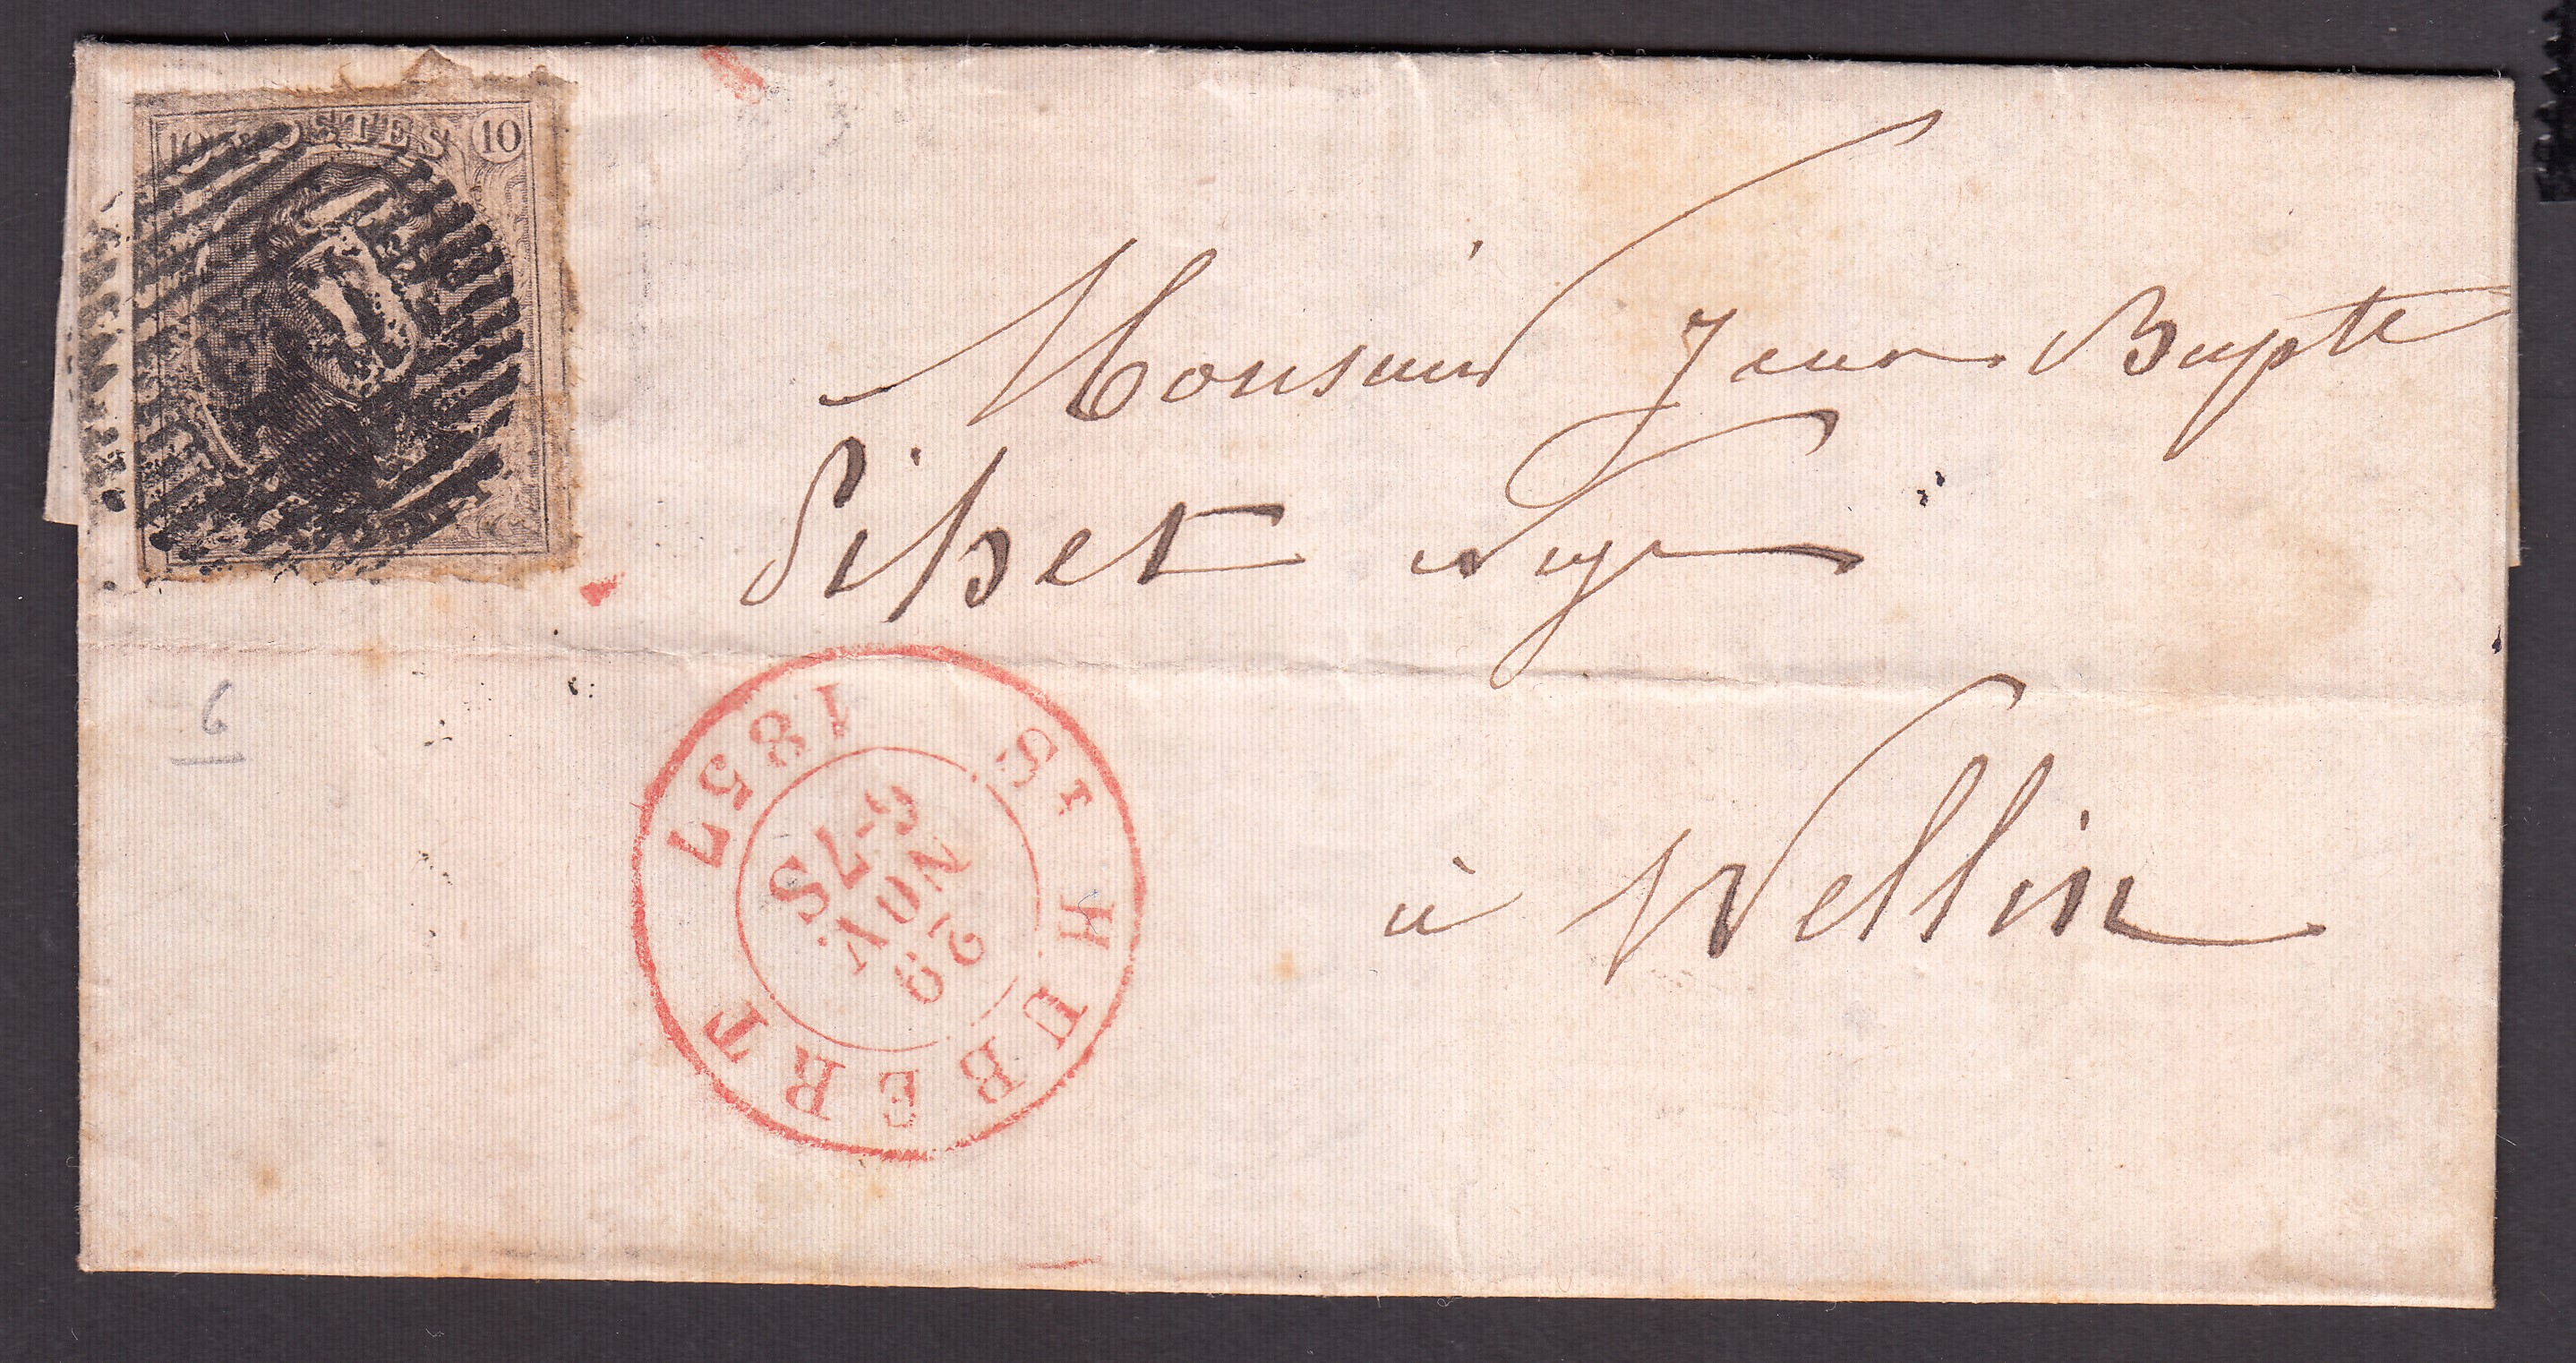 10 POSTES 10
Monsieur Jean Bapte
à Wellin
St HUBERT
1857
29
NOV.
6-7S
6